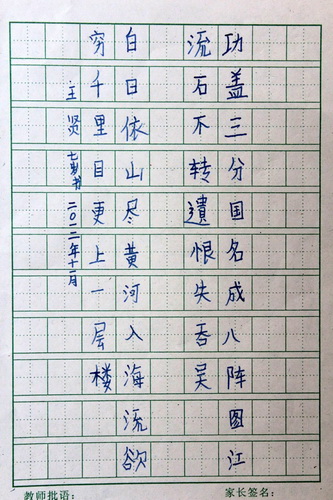 功盖三分国名成八阵图江
流石不转遺恨失吞吴
白日依山尽黄河入海流欲
穷千里目更上一层楼
主贤七岁书二〇一二年十一月
教师批语：
家长签名：